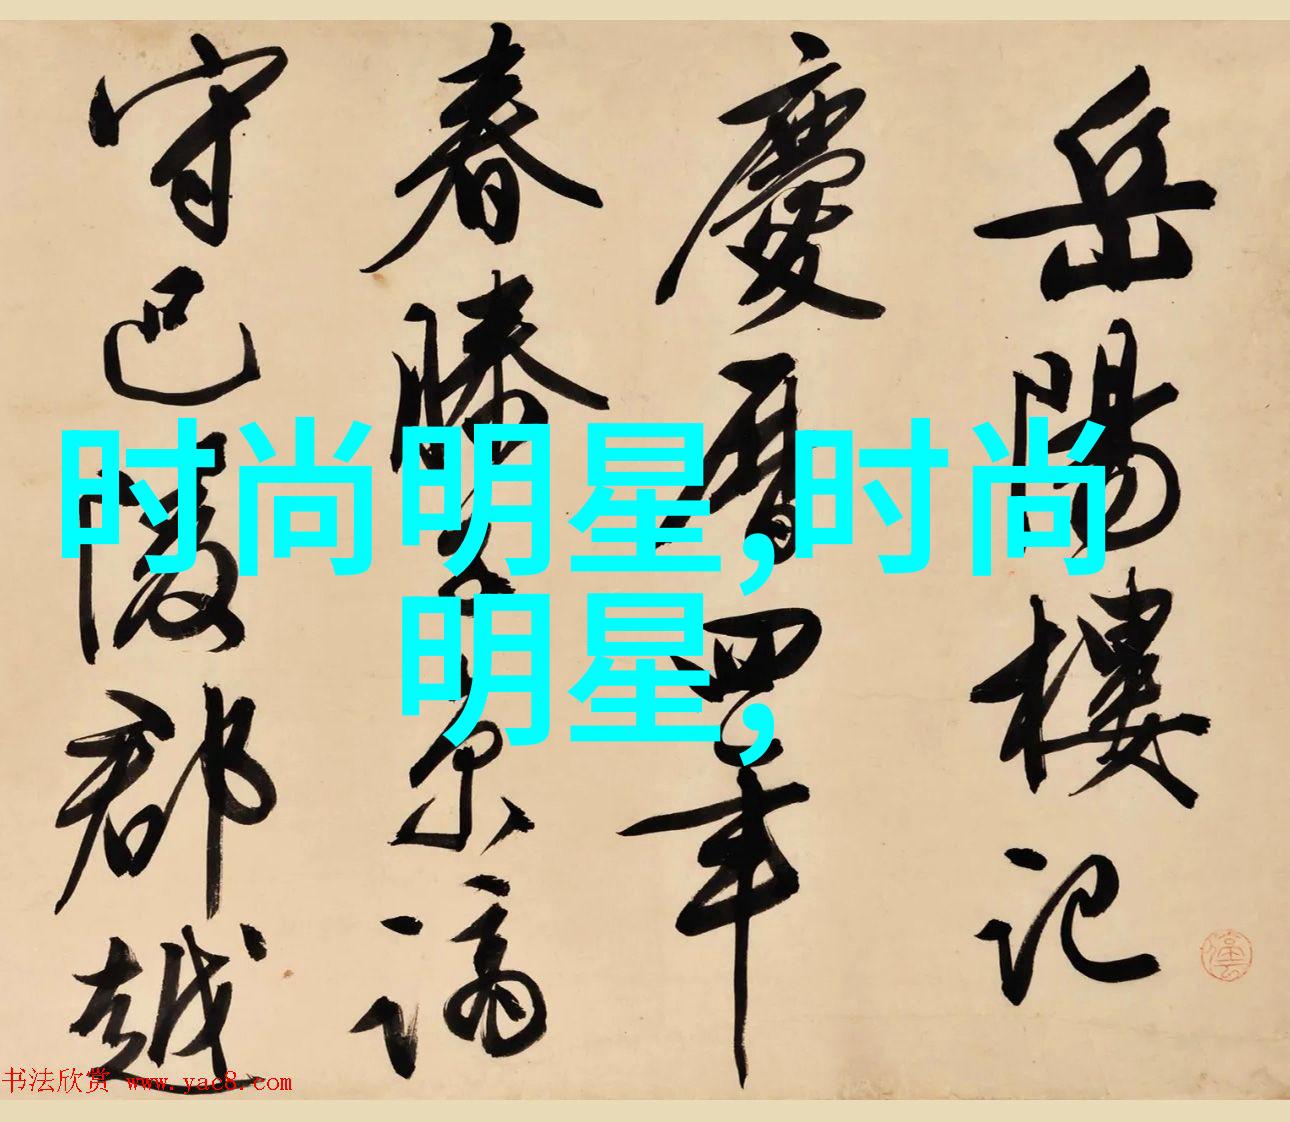 岳陽樓記
慶曆四年
春滕子京謫
守巴陵郡越
时尚明星,时尚
明星,
书法欣赏 www.yac8.com